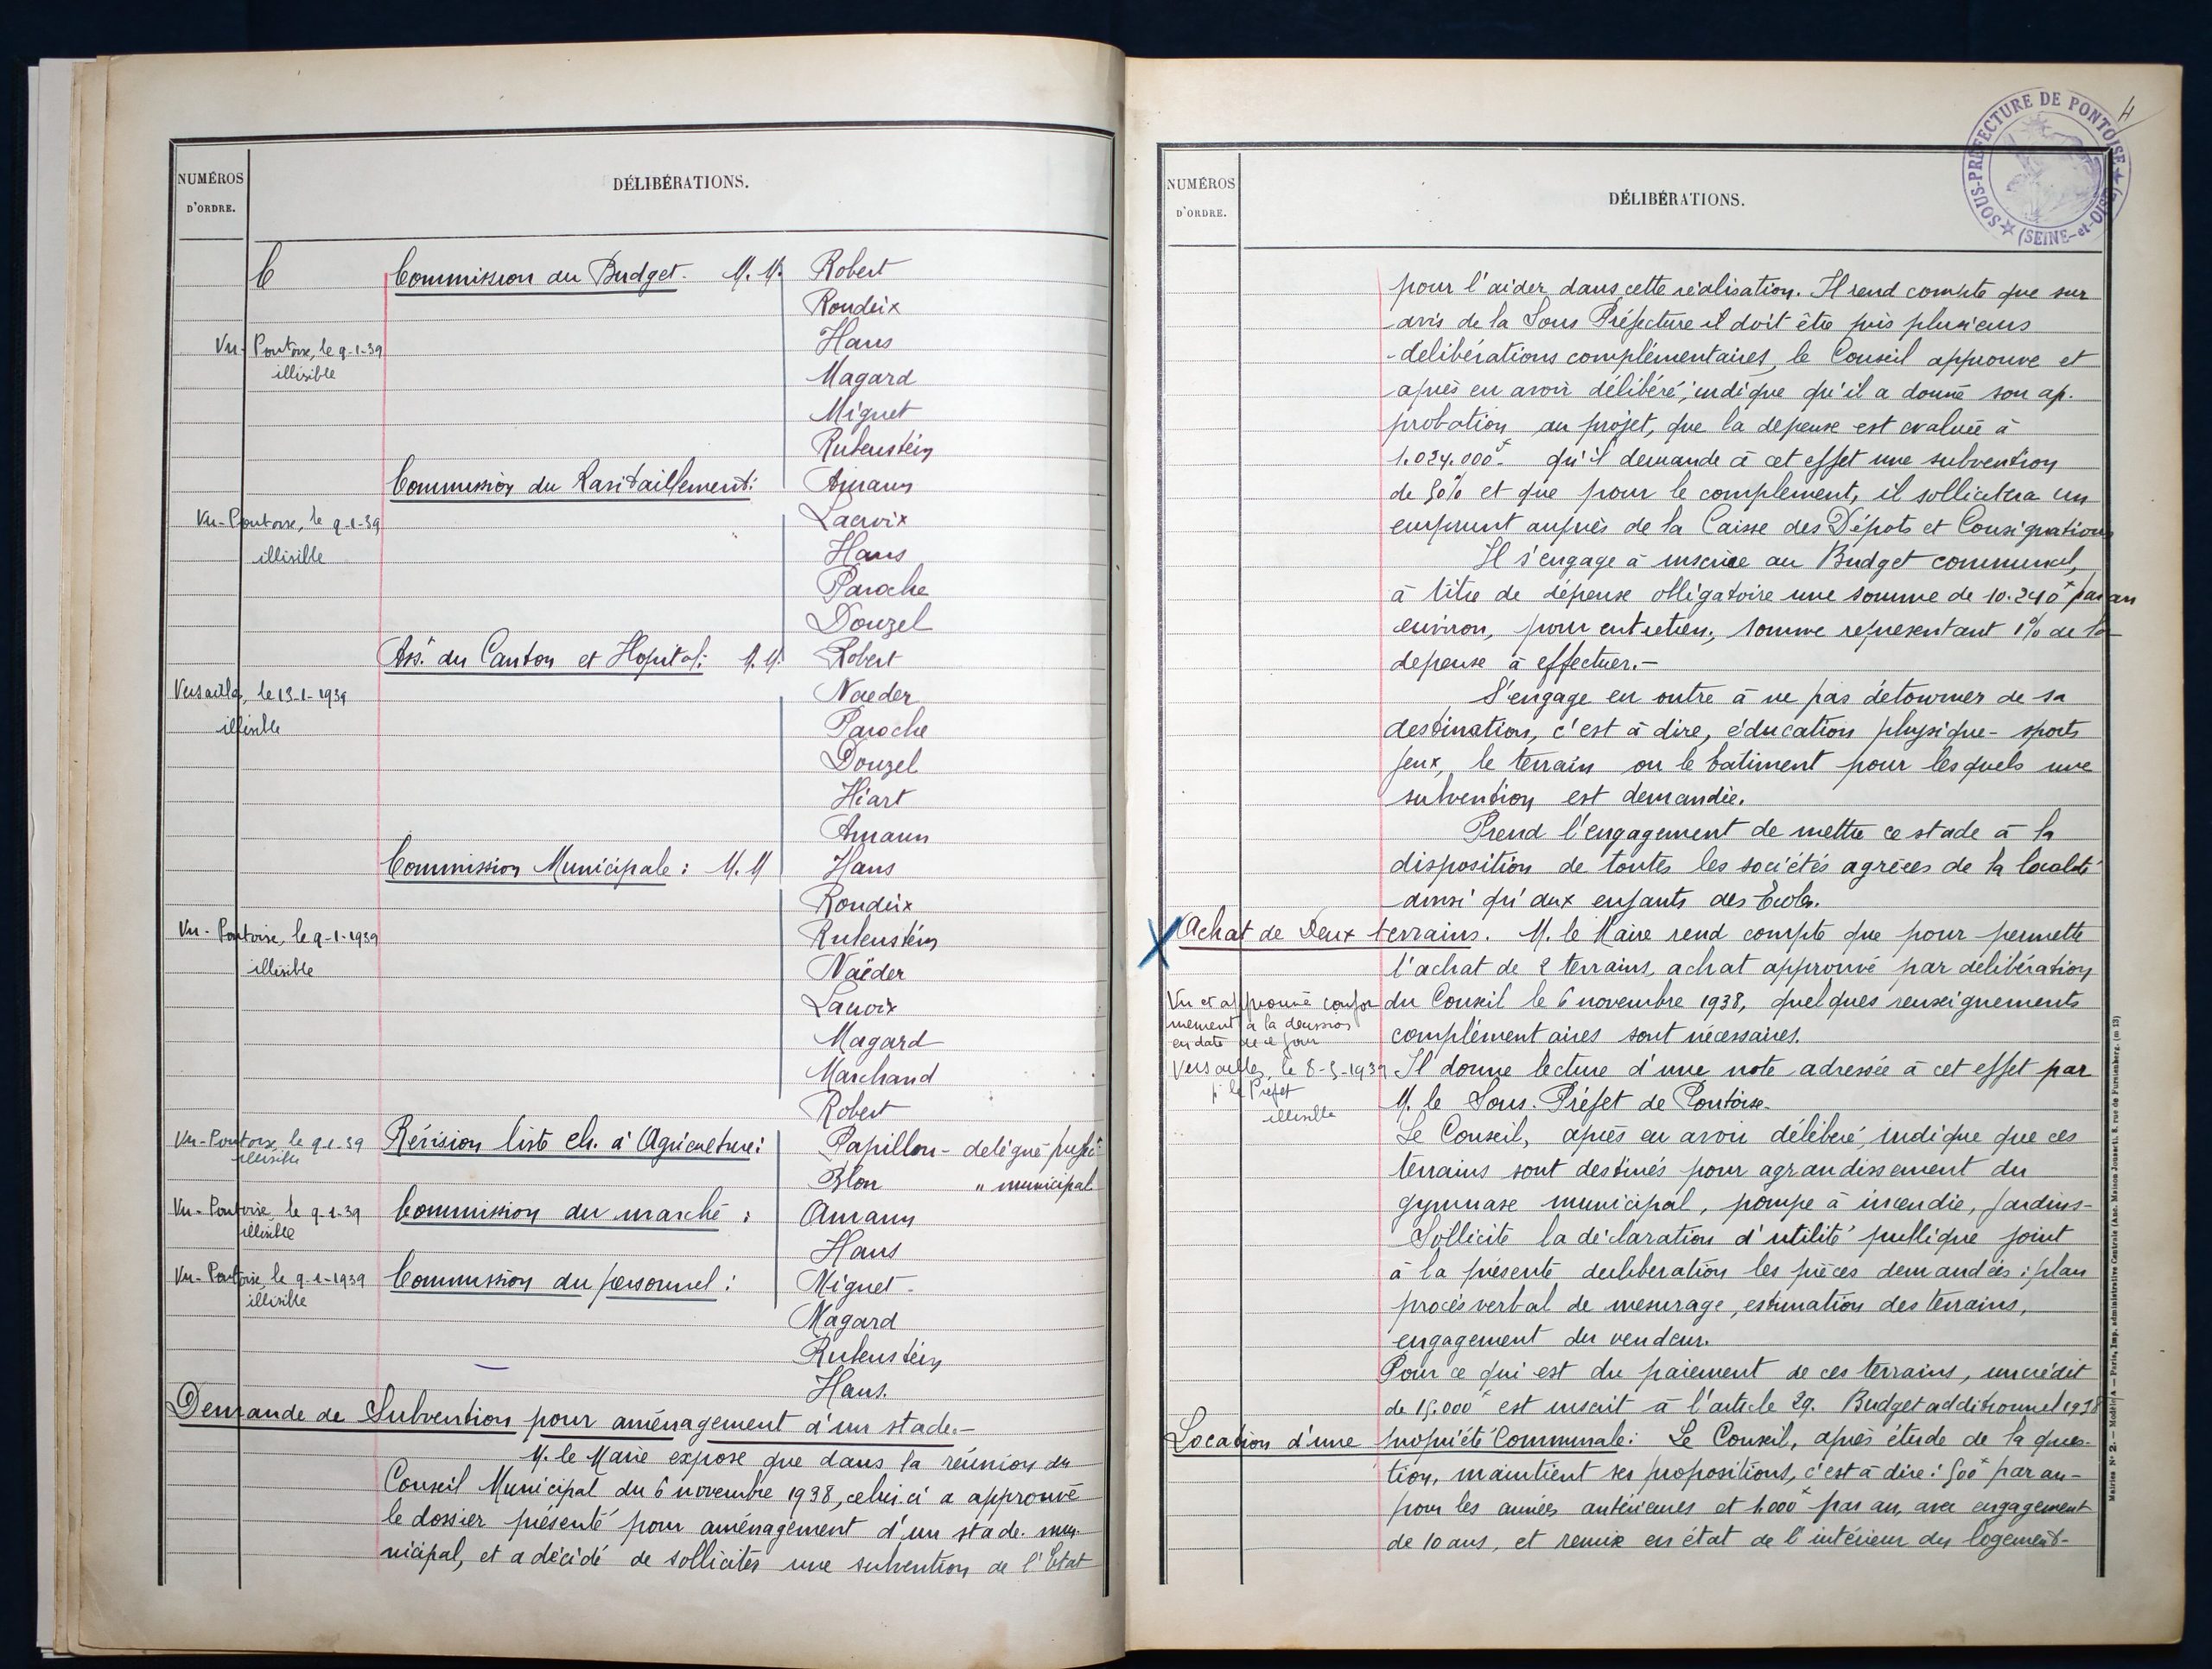 NUMÉROS
D'ORDRE.
DÉLIBÉRATIONS.
C
Commission du Budget. M.M. Robert
Rondeix
Vu - Pontoise, le 9-1-39
Hans
illisible
Magard
Miguet
Rubenstein
Commission du Ravitaillement: Amann
Vu - Pontoise, le 9-1-39
Lacroix
illisible
Hans
Paroche
Douzel
Ass. du Canton et Hopital: M.M. Robert
Versailles, le 13-1-1939
Naeder
illisible
Paroche
Douzel
Hiart
Amann
Commission Municipale: M.M Hans
Rondeix
Vu - Pontoise, le 9-1-1939
Rubenstein
illisible
Naëder
Lacroix
Magard
Marchand
Robert
Vu - Pontoise, le 9-1-39 Révision liste ch. d'Agriculture: Papillon - délégué préfet
illisible
Blon " municipal
Vu - Pontoise, le 9-1-39 Commission du marché : Amann
illisible
Hans
Vu - Pontoise, le 9-1-1939 Commission du personnel : Miguet -
illisible
Magard
Rubenstein
Hans.
Demande de Subvention pour aménagement d'un stade. -
M. le Maire expose que dans la réunion du
Conseil Municipal du 6 novembre 1938, celui-ci a approuvé
le dossier présenté pour aménagement d'un stade mu-
nicipal, et a décidé de solliciter une subvention de l'Etat
4
SOUS-PRÉFECTURE DE PONTOISE
(SEINE-et-OISE)
NUMÉROS
D'ORDRE.
DÉLIBÉRATIONS.
pour l'aider dans cette réalisation. Il rend compte que sur
avis de la Sous Préfecture il doit être pris plusieurs
délibérations complémentaires, le Conseil approuve et
après en avoir délibéré, indique qu'il a donné son ap-
probation au projet, que la dépense est evaluée à
1.024.000f qu'il demande à cet effet une subvention
de 50% et que pour le complement, il sollicitera un
emprunt auprès de la Caisse des Dépots et Consignations
Il s'engage à inscrire au Budget communal,
à titre de dépense obligatoire une somme de 10.240f par an
environ, pour entretien, somme representant 1% de la
depense à effectuer. -
S'engage en outre à ne pas détourner de sa
destination, c'est à dire, éducation physique - sports
jeux, le terrain ou le batiment pour lesquels une
subvention est demandée.
Prend l'engagement de mettre ce stade à la
disposition de toutes les sociétés agréées de la localité
ainsi qu'aux enfants des Ecoles.
Achat de Deux terrains. M. le Maire rend compte que pour permettre
l'achat de 2 terrains, achat approuvé par deliberation
du Conseil le 6 novembre 1938, quelques renseignements
complémentaires sont nécessaires.
Vu et approuvé confor
mément à la décision
en date de ce jour
Versailles, le 8-5-1939
p. le Préfet
illisible
Il donne lecture d'une note adressée à cet effet par
M. le Sous-Préfet de Pontoise.
Le Conseil, après en avoir délibéré, indique que ces
terrains sont destinés pour agrandissement du
gymnase municipal, pompe à incendie, jardins -
Sollicite la déclaration d'utilité publique joint
à la présente deliberation les pièces demandées : plan
procès verbal de mesurage, estimation des terrains,
engagement du vendeur.
Pour ce qui est du paiement de ces terrains, un crédit
de 15.000f est inscrit à l'article 29. Budget additionnel 1938
Location d'une propriété Communale: Le Conseil, après étude de la ques-
tion, maintient ses propositions, c'est à dire : 500f par an -
pour les années antérieures et 1.000f par an, avec engagement
de 10 ans, et remise en état de l'intérieur du logement -
Mairies N° 2. - Modèle A - Paris, Imp. administrative Centrale (Anc. Maison Jousset), 8, rue de Furstenberg. (m 13)